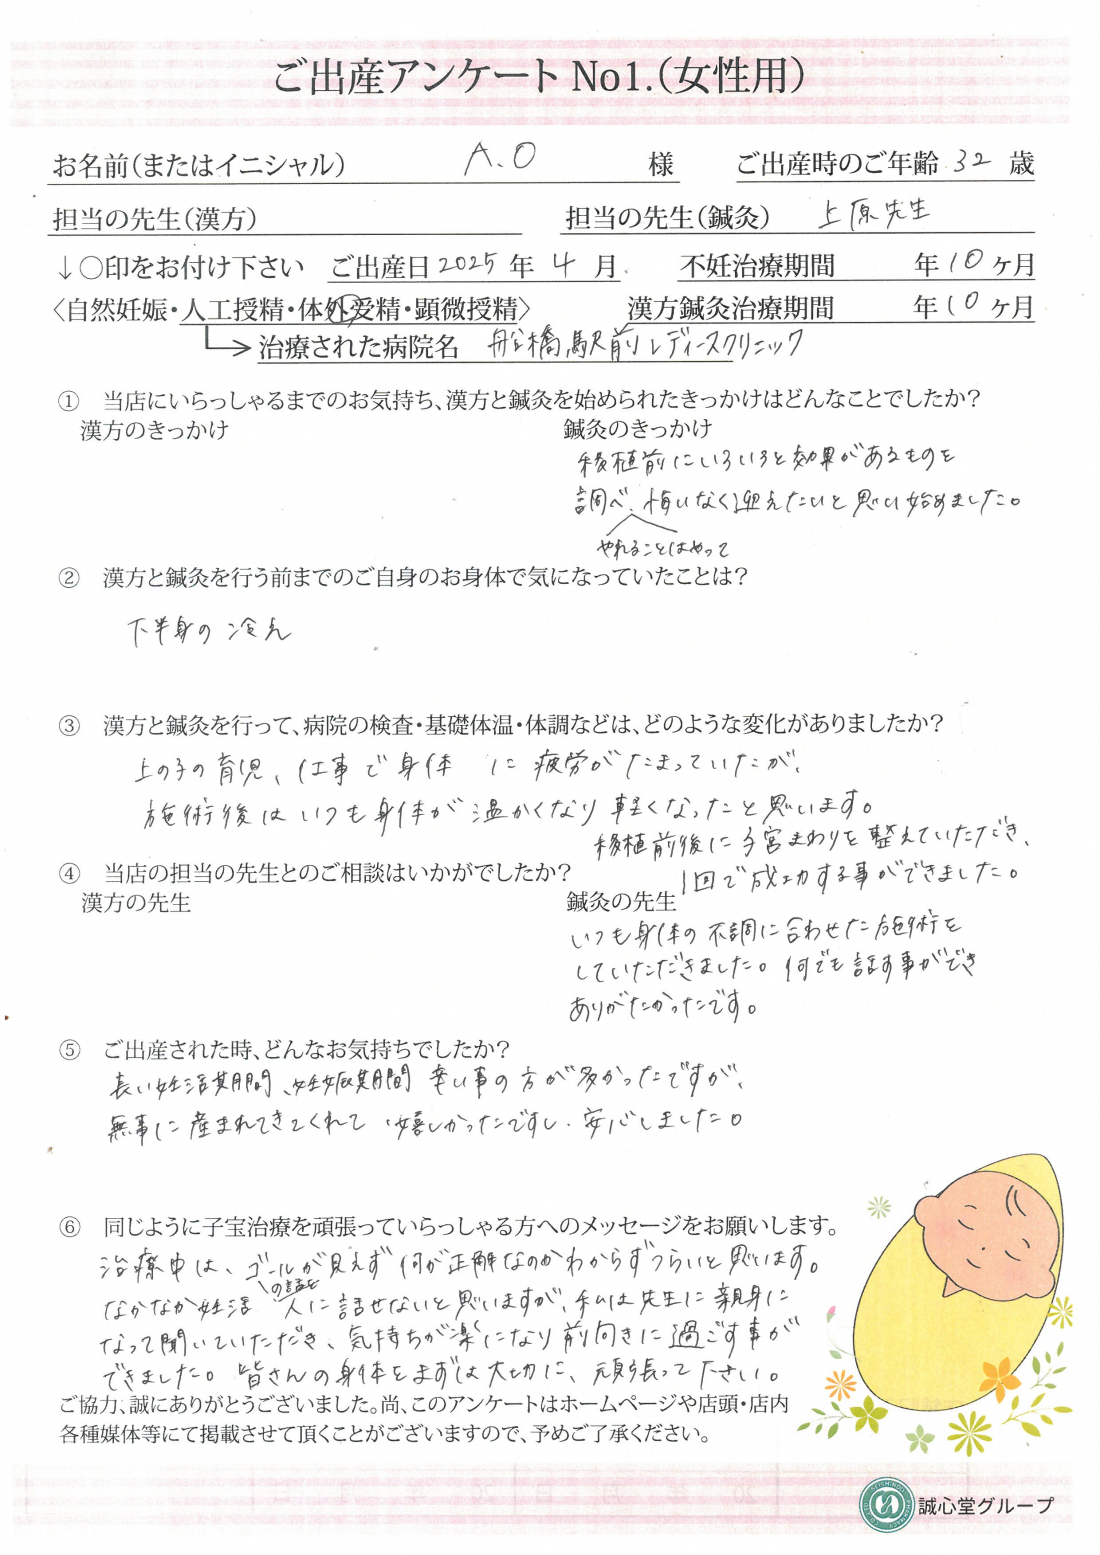 ご出産アンケート No1.（女性用）
お名前（またはイニシャル） A.O 様 ご出産時のご年齢 32 歳
担当の先生（漢方） 担当の先生（鍼灸） 上原先生
↓○印をお付け下さい ご出産日 2025 年 4 月 不妊治療期間 年 10 ヶ月
〈自然妊娠・人工授精・体外受精・顕微授精〉 漢方鍼灸治療期間 年 10 ヶ月
治療された病院名 船橋駅前レディースクリニック
① 当店にいらっしゃるまでのお気持ち、漢方と鍼灸を始められたきっかけはどんなことでしたか？
漢方のきっかけ 鍼灸のきっかけ
移植前にいろいろと効果があるものを
調べ、悔いなく迎えたいと思い始めました。
やれることはやって
② 漢方と鍼灸を行う前までのご自身のお身体で気になっていたことは？
下半身の冷え
③ 漢方と鍼灸を行って、病院の検査・基礎体温・体調などは、どのような変化がありましたか？
上の子の育児、仕事で身体に疲労がたまっていたが、
施術後はいつも身体が温かくなり軽くなったと思います。
移植前後に子宮まわりを整えていただき、
1回で成功する事ができました。
④ 当店の担当の先生とのご相談はいかがでしたか？
漢方の先生 鍼灸の先生
いつも身体の不調に合わせた施術を
していただきました。何でも話す事ができ
ありがたかったです。
⑤ ご出産された時、どんなお気持ちでしたか？
長い妊活期間、妊娠期間 辛い事の方が多かったですが、
無事に産まれてきてくれて嬉しかったですし、安心しました。
⑥ 同じように子宝治療を頑張っていらっしゃる方へのメッセージをお願いします。
治療中は、ゴールが見えず何が正解なのかわからずつらいと思います。
なかなか妊活の話を人に話せないと思いますが、私は先生に親身に
なって聞いていただき、気持ちが楽になり前向きに過ごす事が
できました。皆さんの身体をまずは大切に、頑張って下さい。
ご協力、誠にありがとうございました。尚、このアンケートはホームページや店頭・店内
各種媒体等にて掲載させて頂くことがございますので、予めご了承ください。
誠心堂グループ